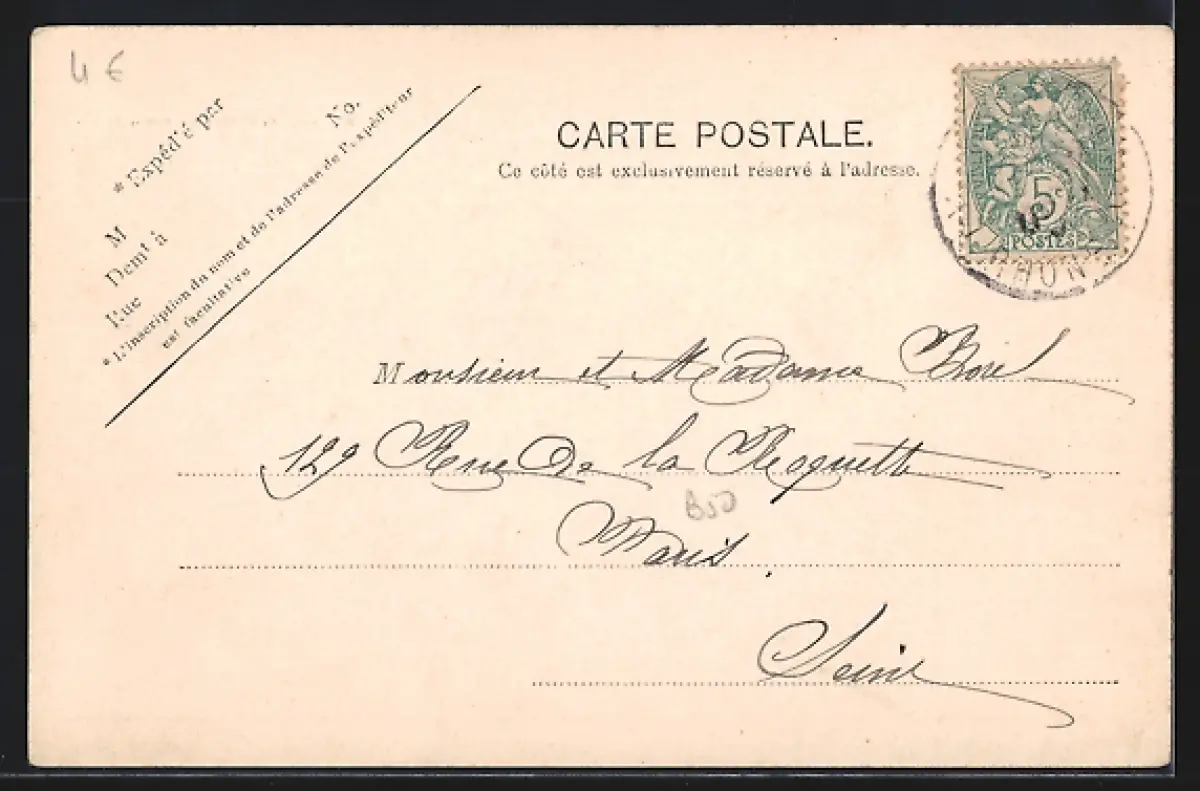 4 €
* Expédié par
No.
M
Demt à
Rue
* L'inscription du nom et de l'adresse de l'expéditeur
est facultative
CARTE POSTALE.
Ce côté est exclusivement réservé à l'adresse.
5c
POSTES
Monsieur et Madame Borel
129 Rue De la Roquette
B50
Paris.
Seine